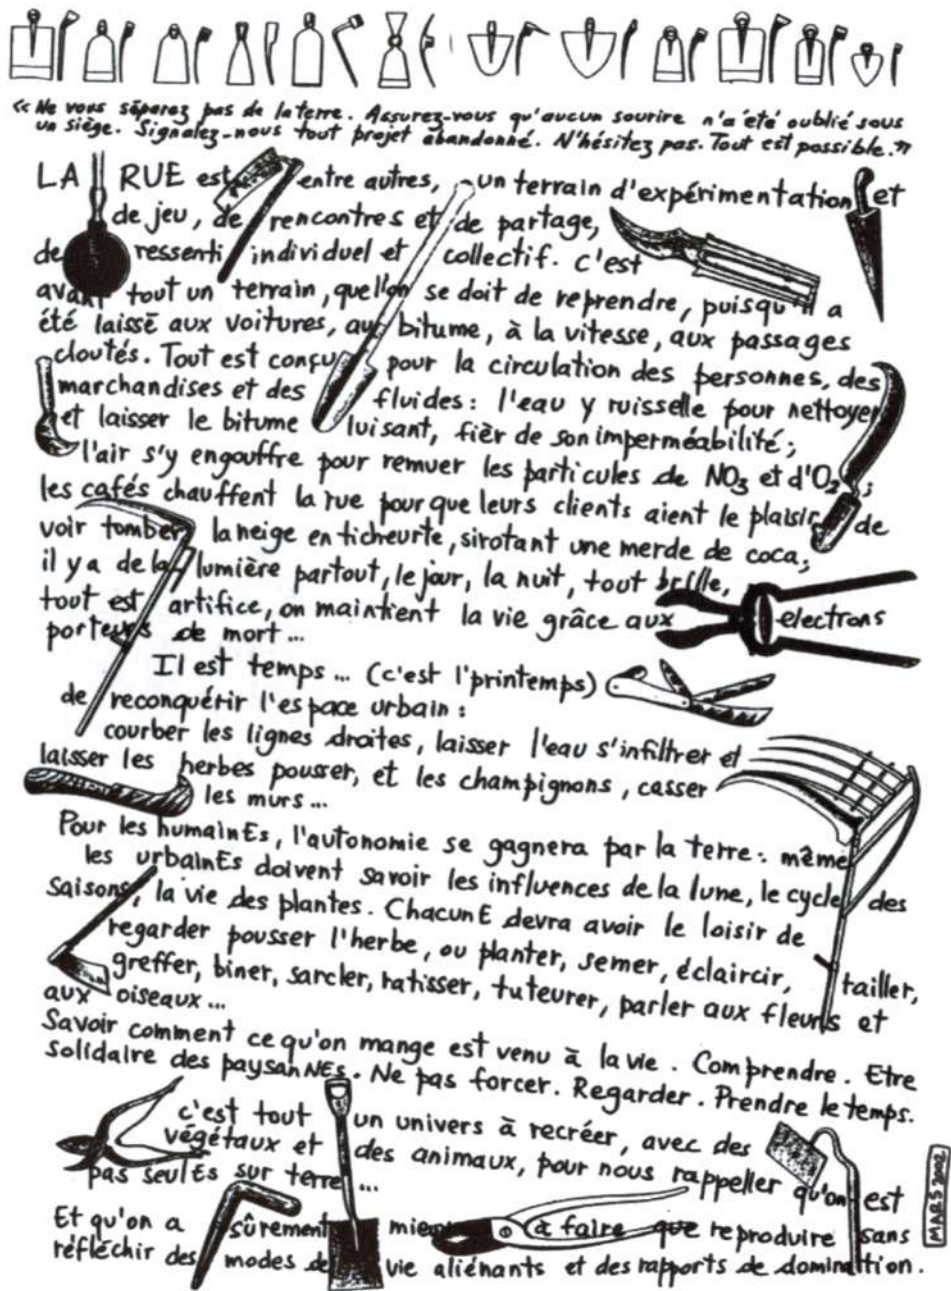 «Ne vous séparez pas de la terre. Assurez-vous qu'aucun sourire n'a été oublié sous
un siège. Signalez-nous tout projet abandonné. N'hésitez pas. Tout est possible.»
LA RUE est, entre autres, un terrain d'expérimentation et
de jeu, de rencontres et de partage,
de ressenti individuel et collectif. C'est
avant tout un terrain, que l'on se doit de reprendre, puisqu'il a
été laissé aux voitures, au bitume, à la vitesse, aux passages
cloutés. Tout est conçu pour la circulation des personnes, des
marchandises et des fluides : l'eau y ruisselle pour nettoyer
et laisser le bitume luisant, fier de son imperméabilité ;
l'air s'y engouffre pour remuer les particules de NO3 et d'O2 ;
les cafés chauffent la rue pour que leurs clients aient le plaisir de
voir tomber la neige en ticheurte, sirotant une merde de coca ;
il y a de la lumière partout, le jour, la nuit, tout brille,
tout est artifice, on maintient la vie grâce aux electrons
porteurs de mort ...
Il est temps ... (c'est l'printemps)
de reconquérir l'espace urbain :
courber les lignes droites, laisser l'eau s'infiltrer et
laisser les herbes pousser, et les champignons, casser
les murs ...
Pour les humainEs, l'autonomie se gagnera par la terre : même
les urbainEs doivent savoir les influences de la lune, le cycle des
saisons, la vie des plantes. ChacunE devra avoir le loisir de
regarder pousser l'herbe, ou planter, semer, éclaircir, tailler,
greffer, biner, sarcler, ratisser, tuteurer, parler aux fleurs et
aux oiseaux ...
Savoir comment ce qu'on mange est venu à la vie. Comprendre. Etre
solidaire des paysanNEs. Ne pas forcer. Regarder. Prendre le temps.
c'est tout un univers à recréer, avec des
végétaux et des animaux, pour nous rappeller qu'on est
pas seulEs sur terre ...
Et qu'on a sûrement mieux à faire que reproduire sans
réfléchir des modes de vie aliénants et des rapports de domination.
MARS 2002